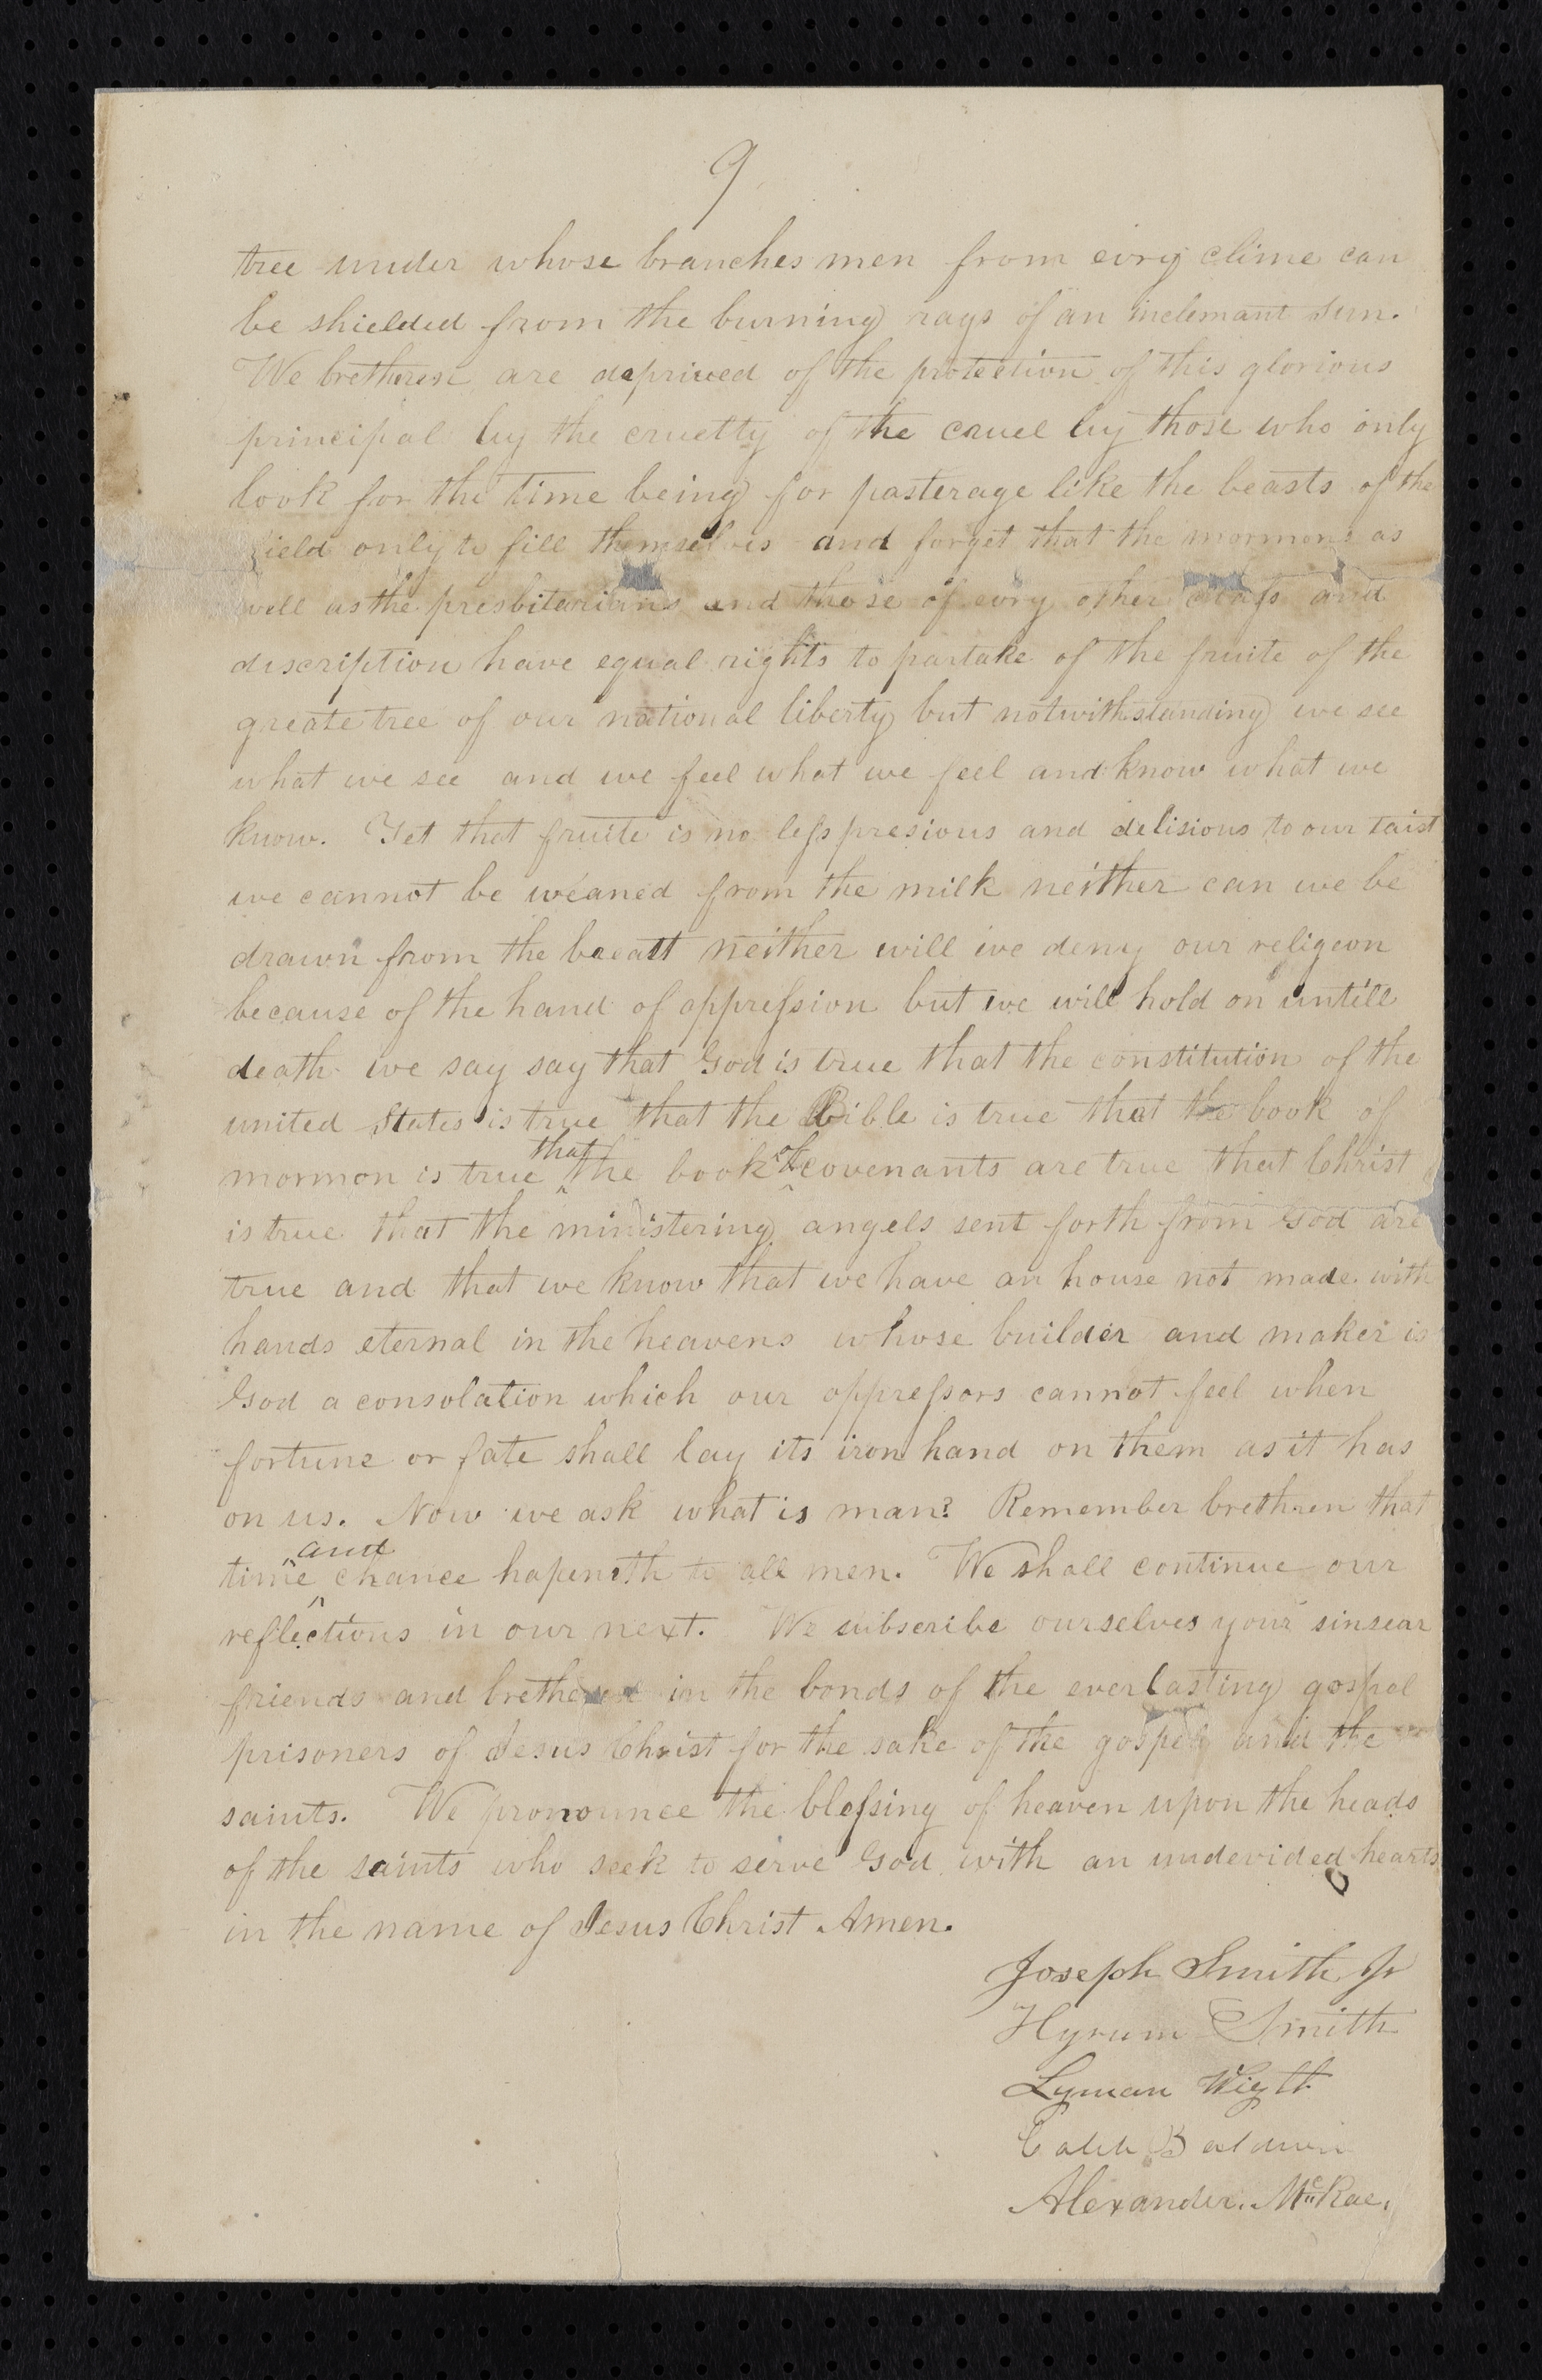 9
tree under whose branches men from evry clime can
be shielded from the burning rays of an inclemant sun.
We bretheren are deprived of the protection of this glorious
principal by the cruelty of the cruel by those who only
look for the time being for pasterage like the beasts of the
field only to fill themselves and forget that the mormons as
well as the presbitarians and those of evry other class and
discription have equal rights to partake of the fruite of the
greate tree of our national liberty but notwithstanding we see
what we see and we feel what we feel and know what we
know. Yet that fruite is no less presious and delisious to our taist
we cannot be weaned from the milk neither can we be
drawn from the breast neither will we deny our religeon
because of the hand of oppression but we will hold on untill
death we say say that God is true that the constitution of the
united States is true that the Bible is true that the book of
mormon is true that the book of covenants are true that Christ
is true that the ministering angels sent forth from God are
true and that we know that we have an house not made with
hands eternal in the heavens whose builder and maker is
God a consolation which our oppressors cannot feel when
fortune or fate shall lay its iron hand on them as it has
on us. Now we ask what is man? Remember brethren that
time and chance hapeneth to all men. We shall continue our
reflections in our next. We subscribe ourselves your sinsear
friends and bretheren in the bonds of the everlasting gospel
prisoners of Jesus Christ for the sake of the gospel and the
saints. We pronounce the blessing of heaven upon the heads
of the saints who seek to serve God with an undevided hearts
in the name of Jesus Christ Amen.
Joseph Smith Jr
Hyrum Smith
Lyman Wight
Caleb Baldwin
Alexander. McRae.